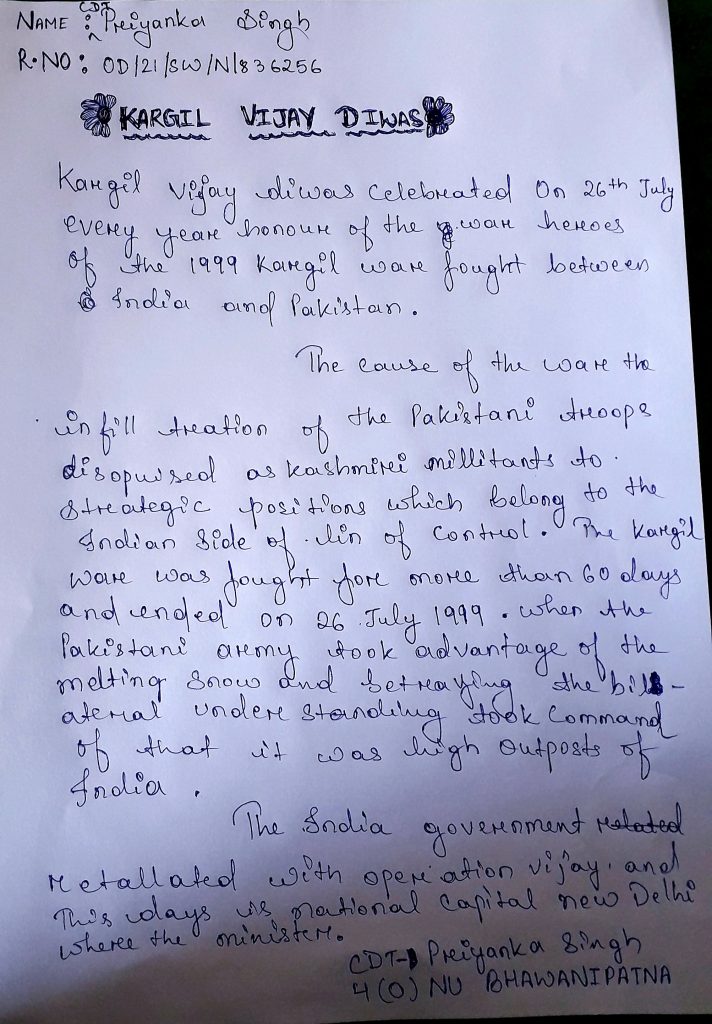 NAME : CDT Preiyanka Singh
R.NO : OD/21/SW/N/836256
KARGIL VIJAY DIWAS
Kargil vijay diwas celebrated On 26th July
every year honour of the war heroes
of the 1999 Kargil ware fought between
India and Pakistan.
The cause of the ware the
infill treation of the Pakistani troops
disopuised as kashmirei millitants to
streategic positions which belong to the
Indian Side of lin of Control. The Kargil
ware was fought fore more than 60 days
and ended on 26 July 1999. when the
Pakistani army took advantage of the
melting snow and betraying the bil-
ateral undere standing took Command
of that it was high outposts of
India.
The India government related
retallated with opereation vijay. and
This days is national Capital new Delhi
wheree the minister.
CDT- Preiyanka Singh
4(O) NU BHAWANIPATNA